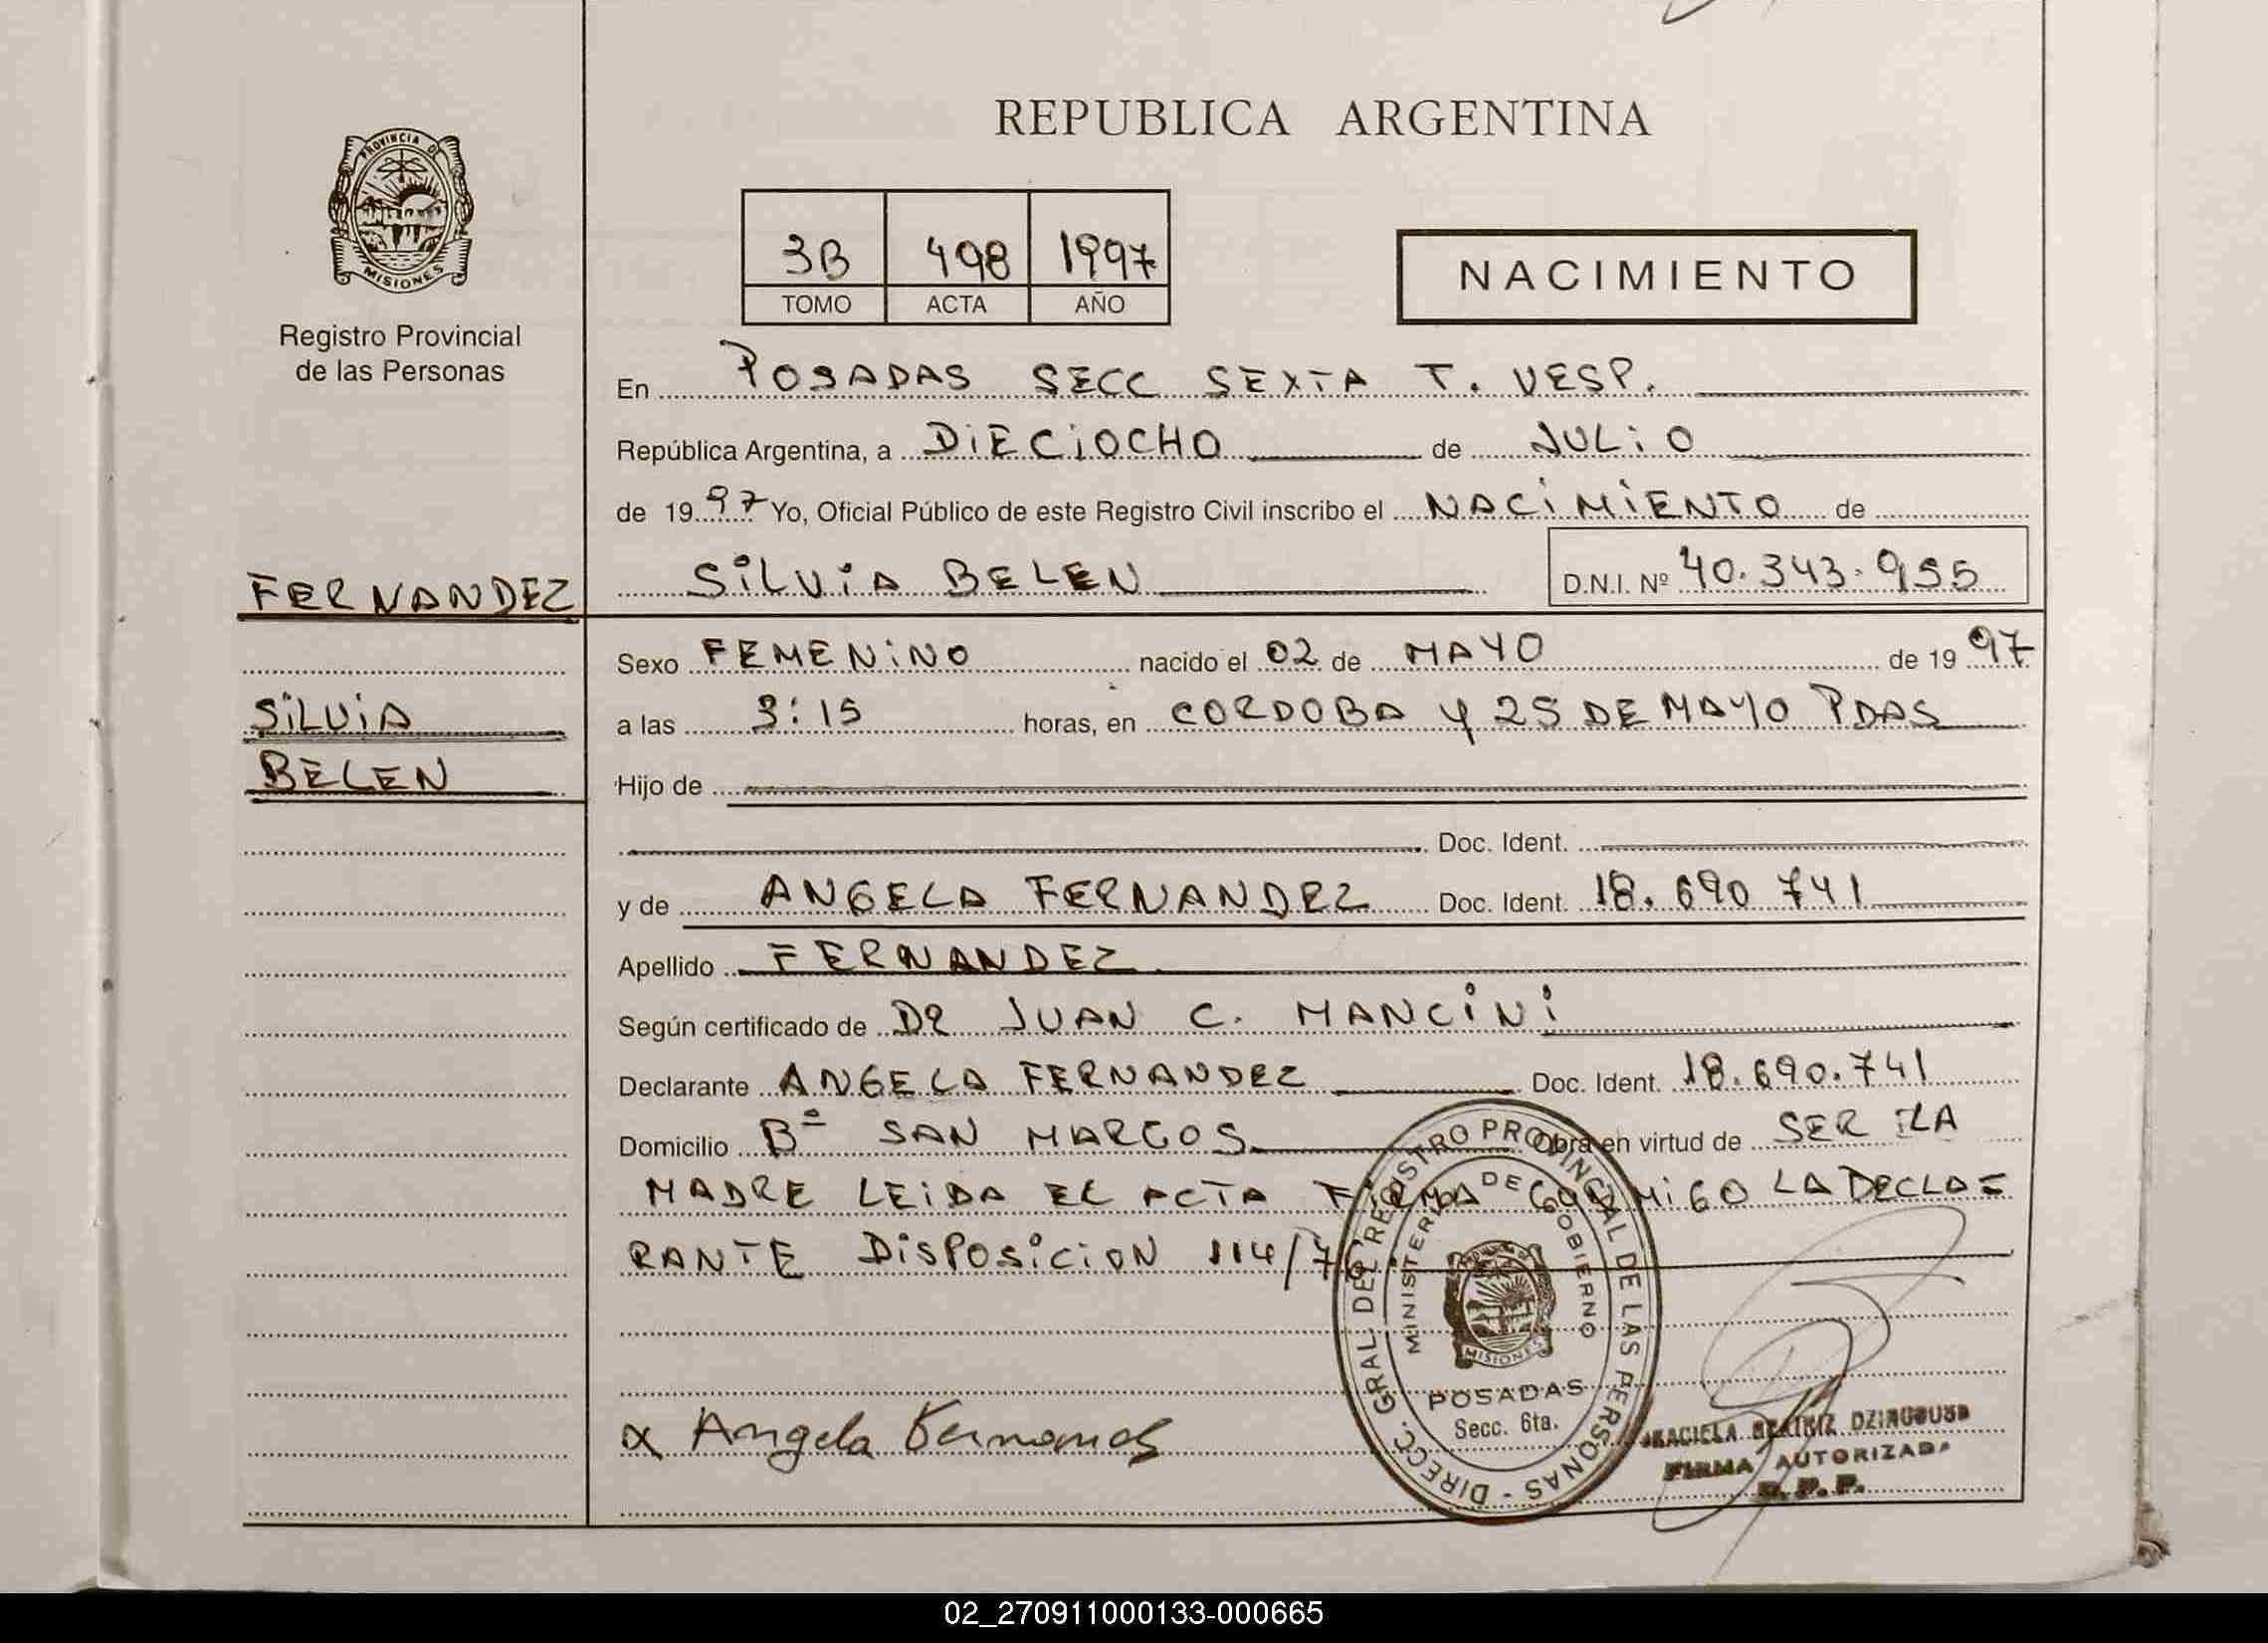 REPUBLICA ARGENTINA
PROVINCIA DE
MISIONES
Registro Provincial
de las Personas
3B 498 1997
TOMO ACTA AÑO
NACIMIENTO
En POSADAS SECC SEXTA T. VESP.
República Argentina, a DIECIOCHO de JULIO
de 1997 Yo, Oficial Público de este Registro Civil inscribo el NACIMIENTO de
FERNANDEZ
SILVIA BELEN D.N.I. Nº 40.343.955
Sexo FEMENINO nacido el 02 de MAYO de 1997
SILVIA
a las 3:15 horas, en CORDOBA y 25 DE MAYO PDAS
BELEN
Hijo de
Doc. Ident.
y de ANGELA FERNANDEZ Doc. Ident. 18.690 741
Apellido FERNANDEZ
Según certificado de DR JUAN C. MANCINI
Declarante ANGELA FERNANDEZ Doc. Ident. 18.690.741
Domicilio Bº SAN MARCOS Obra en virtud de SER LA
MADRE LEIDA EL ACTA FIRMA CONMIGO LA DECLA=
RANTE DISPOSICION 114/76
DIRECC. GRAL DEL REGISTRO PROVINCIAL DE LAS PERSONAS -
MINISTERIO DE GOBIERNO
MISIONES
POSADAS
Secc. 6ta.
x Angela Fernandes
BEATRIZ
FIRMA AUTORIZADA
R.P.P.
02_270911000133-000665